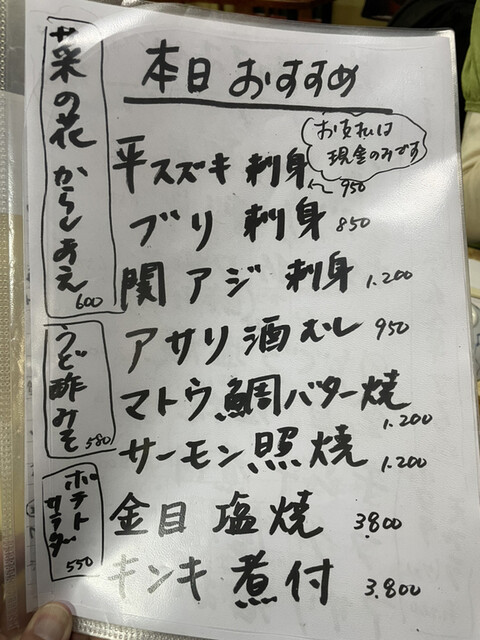 本日おすすめ
お支払は
現金のみです
平スズキ 刺身 950
ブリ 刺身 850
関アジ 刺身 1.200
アサリ酒むし 950
マトウ鯛バター焼 1.200
サーモン照焼 1.200
金目 塩焼 3.800
キンキ煮付 3.800
菜の花 からしあえ 600
うど酢みそ 580
ポテトサラダ 550